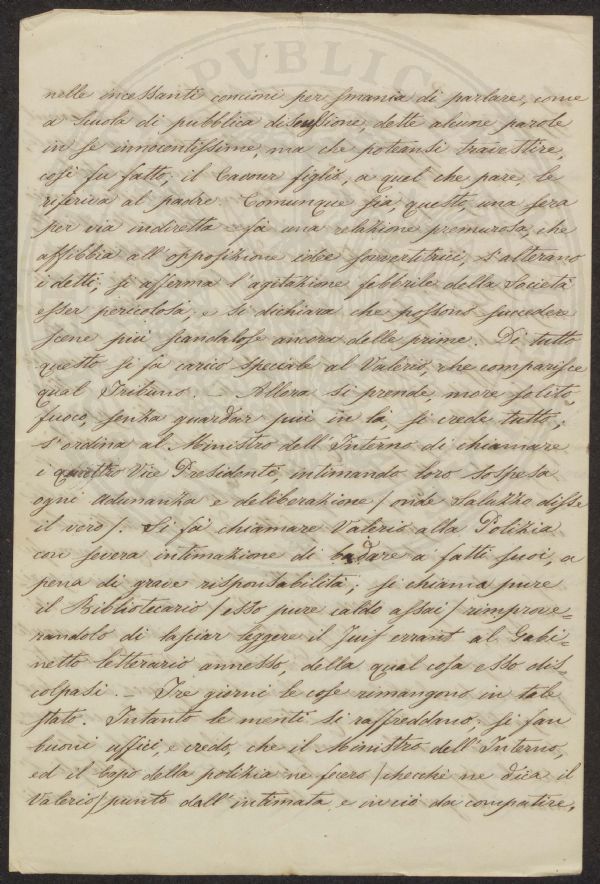 PVBLIC
nelle incessanti concioni per smania di parlare, come
a scuola di pubblica discussione, dette alcune parole
in se innocentissime, ma che poteansi travestire,
così fu fatto; il Cavour figlio, a quel che pare, le
riferiva al padre. Comunque sia, questo, una sera
per via indiretta fa una relazione premurosa, che
affibbia all'opposizione idee sovvertitrici, s'alterano
i detti, si afferma l'agitazione febbrile della Società
esser pericolosa, e si dichiara che possono succedere
scene più scandalose ancora delle prime. Di tutto
questo si fa carico speciale al Valerio, che comparisce
qual Tribuno. — Allora si prende, more solito,
fuoco, senza guardar più in là, si crede tutto;
s'ordina al Ministro dell'Interno di chiamare
i quattro Vice Presidenti, intimando loro sospesa
ogni adunanza e deliberazione / onde Saluzzo disse
il vero /. Si fà chiamare Valerio alla Polizia
con severa intimazione di badare a' fatti suoi, a
pena di grave risponsabilità; si chiama pure
il Bibliotecario / esso pure caldo assai / rimprove=
randolo di lasciar leggere il Juif errant al Gabi=
netto letterario annesso, della qual cosa esso dis=
colpasi. — Tre giorni le cose rimangono in tale
stato. Intanto le menti si raffreddano: si fan
buoni uffici, e credo, che il Ministro dell'Interno,
ed il Capo della polizia ne fecero / checchè ne dica il
Valerio / punto dall'intimata, e in ciò da compatire,